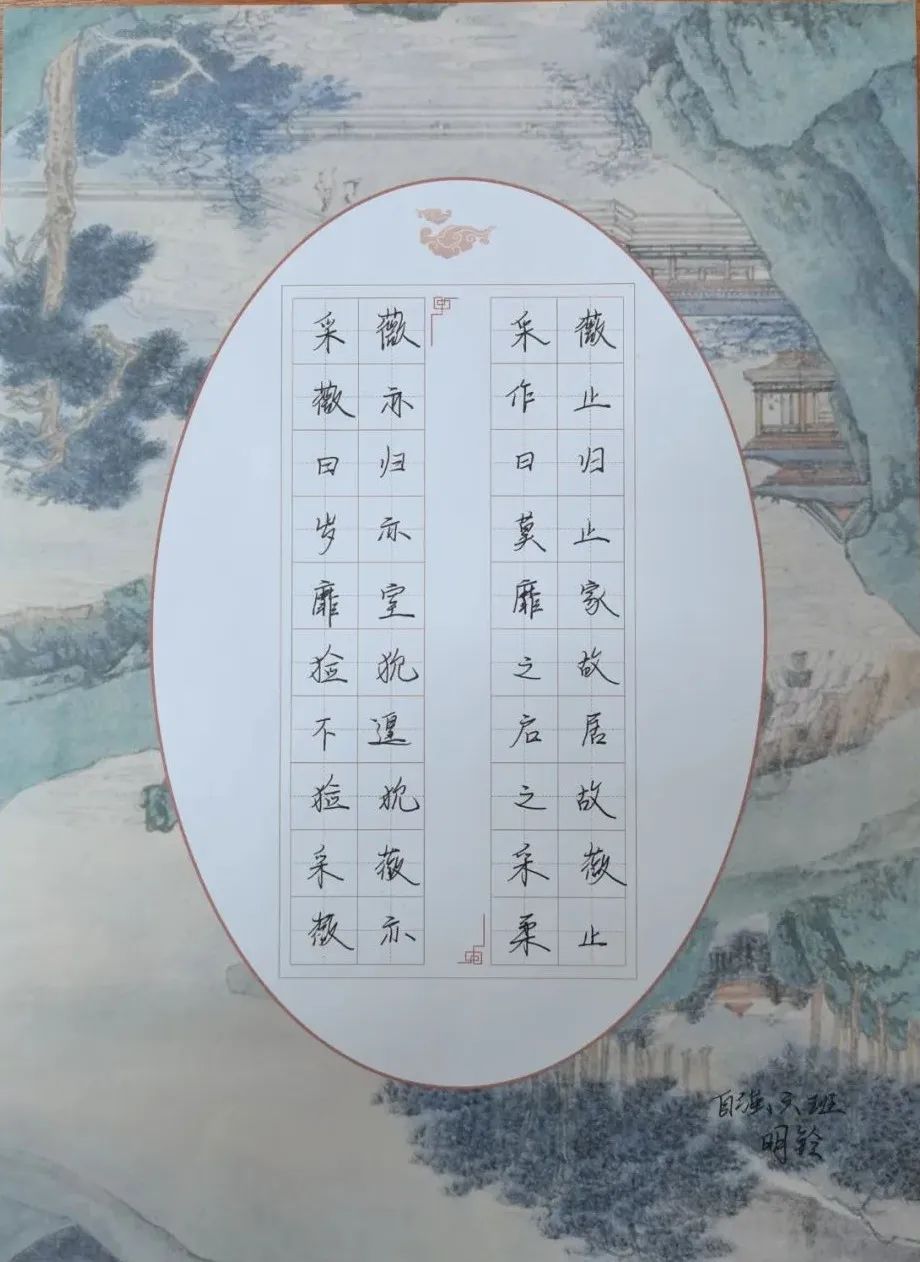 采薇采薇
薇亦作止
曰归曰归
岁亦莫止
靡室靡家
猃狁之故
不遑启居
猃狁之故
采薇采薇
薇亦柔止
自强六班
明铃